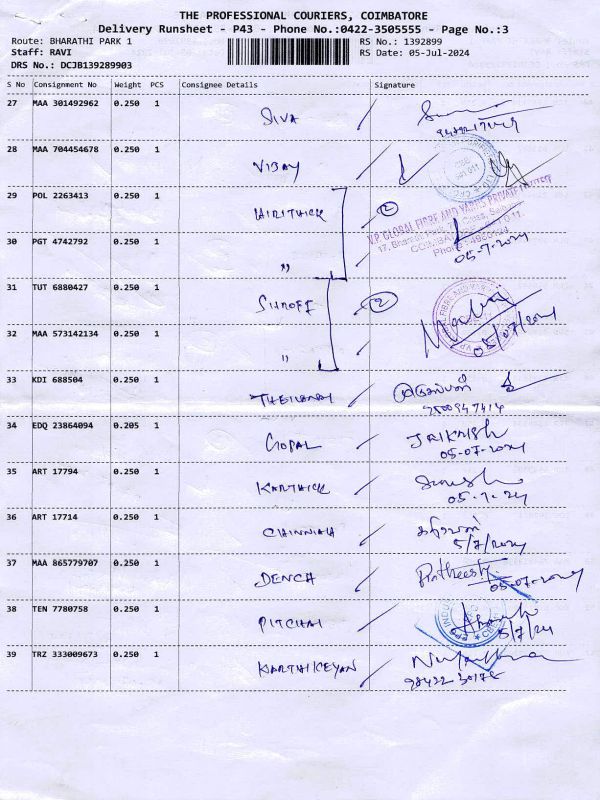 THE PROFESSIONAL COURIERS, COIMBATORE
Delivery Runsheet - P43 - Phone No.:0422-3505555 - Page No.:3
Route: BHARATHI PARK 1 RS No.: 1392899
Staff: RAVI RS Date: 05-Jul-2024
DRS No.: DCJB139289903
S No Consignment No Weight PCS Consignee Details Signature
27 MAA 301492962 0.250 1 SIVA
28 MAA 704454678 0.250 1 VIJAY
29 POL 2263413 0.250 1 HIRITHICK 2
V.P. GLOBAL FIBRE AND YARNS PRIVATE LIMITED
30 PGT 4742792 0.250 1 "
05-7-2024
31 TUT 6880427 0.250 1 SHROFF 2
05/07/2024
32 MAA 573142134 0.250 1 "
33 KDI 688504 0.250 1
9500947414
34 EDQ 23864094 0.205 1 GOPAL JAIKRISH
05-07-2024
35 ART 17794 0.250 1 KARTHICK Suresh
05-7-24
36 ART 17714 0.250 1 CHINNIAH
5/7/2024
37 MAA 865779707 0.250 1 DENCH Pratheesh
05-07-2024
38 TEN 7780758 0.250 1 PITCHAI
5/7/24
39 TRZ 333009673 0.250 1 KARTHIKEYAN